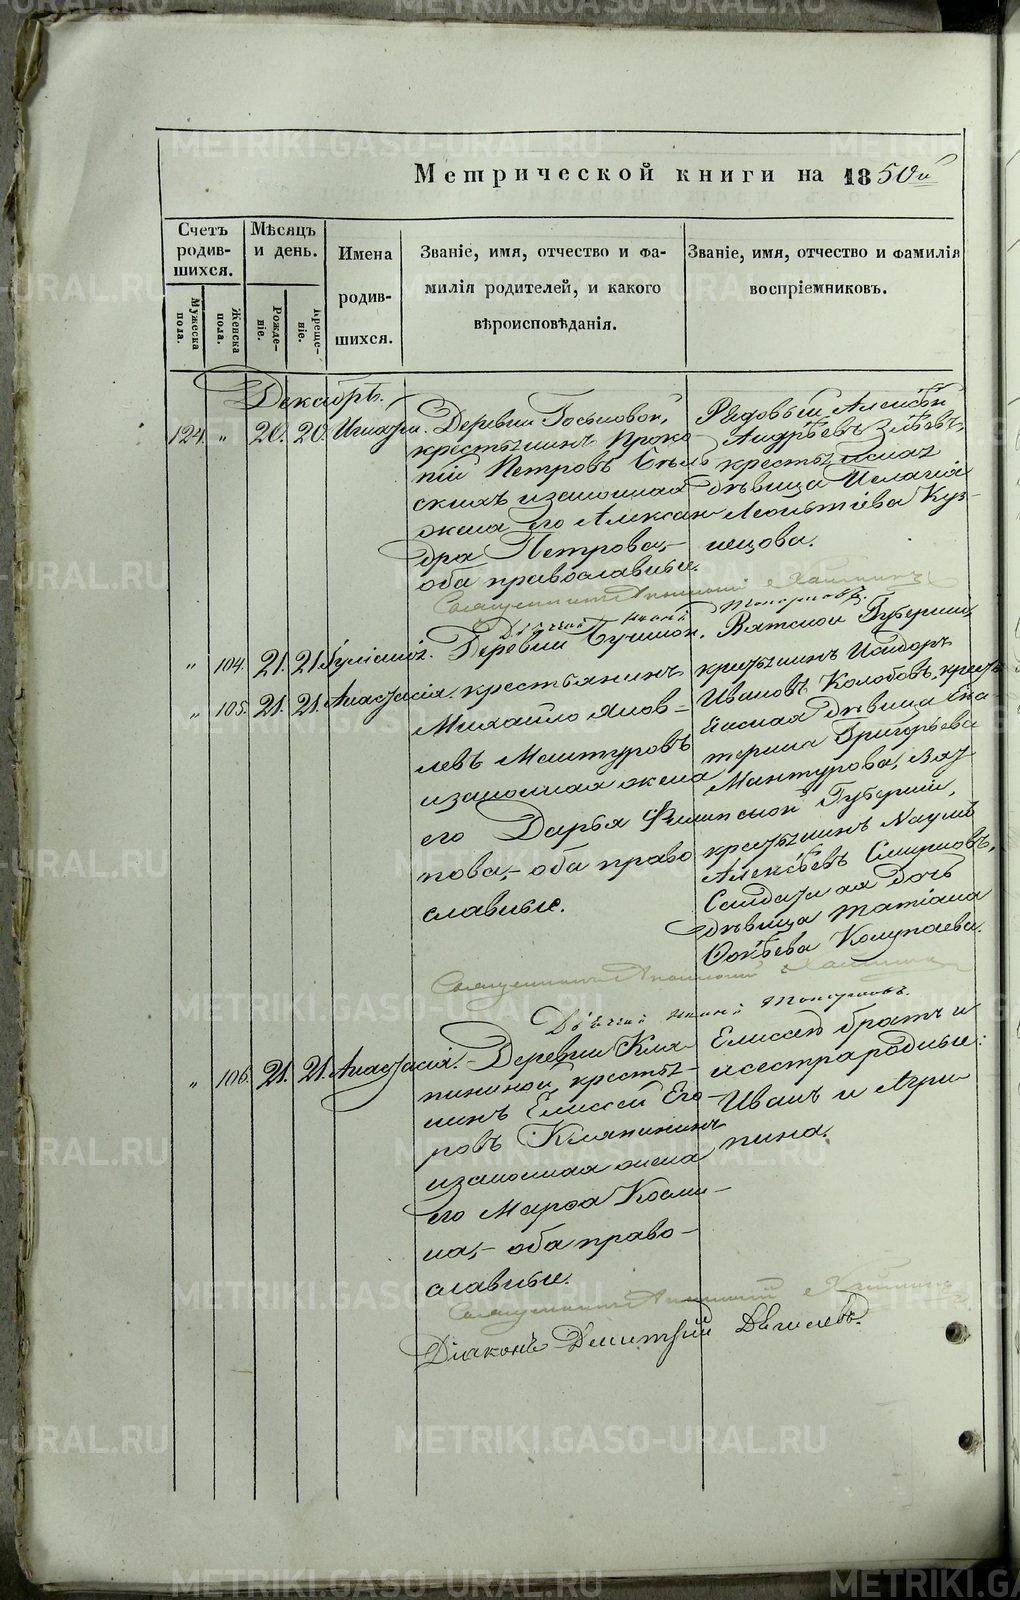 Метрической книги на 1850й
Счетъ родив-шихся.
Мѣсяцъ и день.
Имена родив-шихся.
Званіе, имя, отчество и фа-
милія родителей, и какого
вѣроисповѣданія.
Званіе, имя, отчество и фамилія
воспріемниковъ.
Мужеска пола.
Женска пола.
Рожде-ніе.
Креще-ніе.
Декабрь.
124. " 20. 20. Игнатій. Деревни
крестьянинъ Проко
пій Петровъ
скихъ изаконная
жена его Алексан
дра Петрова,-
оба православные.
Рядовый Алексѣй
Андрѣевъ
крестьянская
дѣвица Пелагія
Леонтіева Куз-
нецова.
Священникъ
Дьячей Иванъ Топорковъ.
" 104. 21. 21. Іуліанія.
" 105. 21. 21. Анастасія.
Деревни
крестьянинъ
Михайло Яков-
левъ Мантуровъ
изаконная жена
его Дарья Филип
пова,- оба право
славные.
Вятской Губерніи
крестьянинъ Исидоръ
Ивановъ Колобовъ, кресть
янская дѣвица Ека
терина Григорьева
Мантурова, Вят
ской Губерніи,
крестьянинъ Наумъ
Алексѣевъ Смирновъ,
Солдатская дочь
дѣвица Татіана
Колупаева.
Священникъ
Дьячей Иванъ Топорковъ.
" 106. 21. 21. Анастасія.
Деревни Кля-
пининой, кресть-
нинъ Елиссей Его-
ровъ Кляпининъ
изаконная жена
его Марфа Косми-
на,- оба право-
славные.
Елиссею братъ и
исестра родные:
Иванъ и Агри
пина.
Священникъ
Діаконъ Димитрій
METRIKI.GASO-URAL.RU